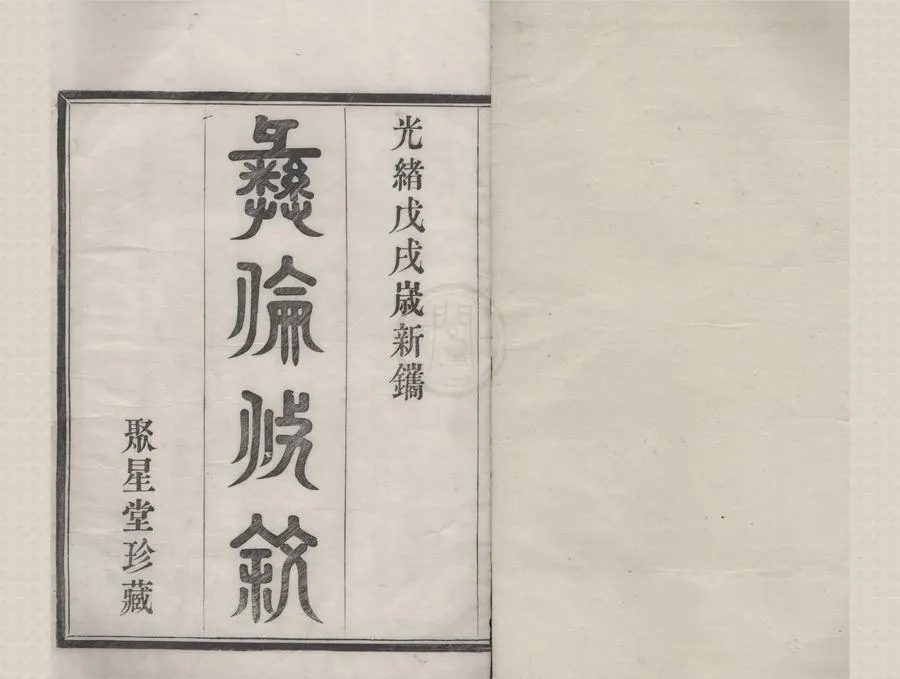 光緒戊戌歲新鐫
彝倫攸敘
聚星堂珍藏